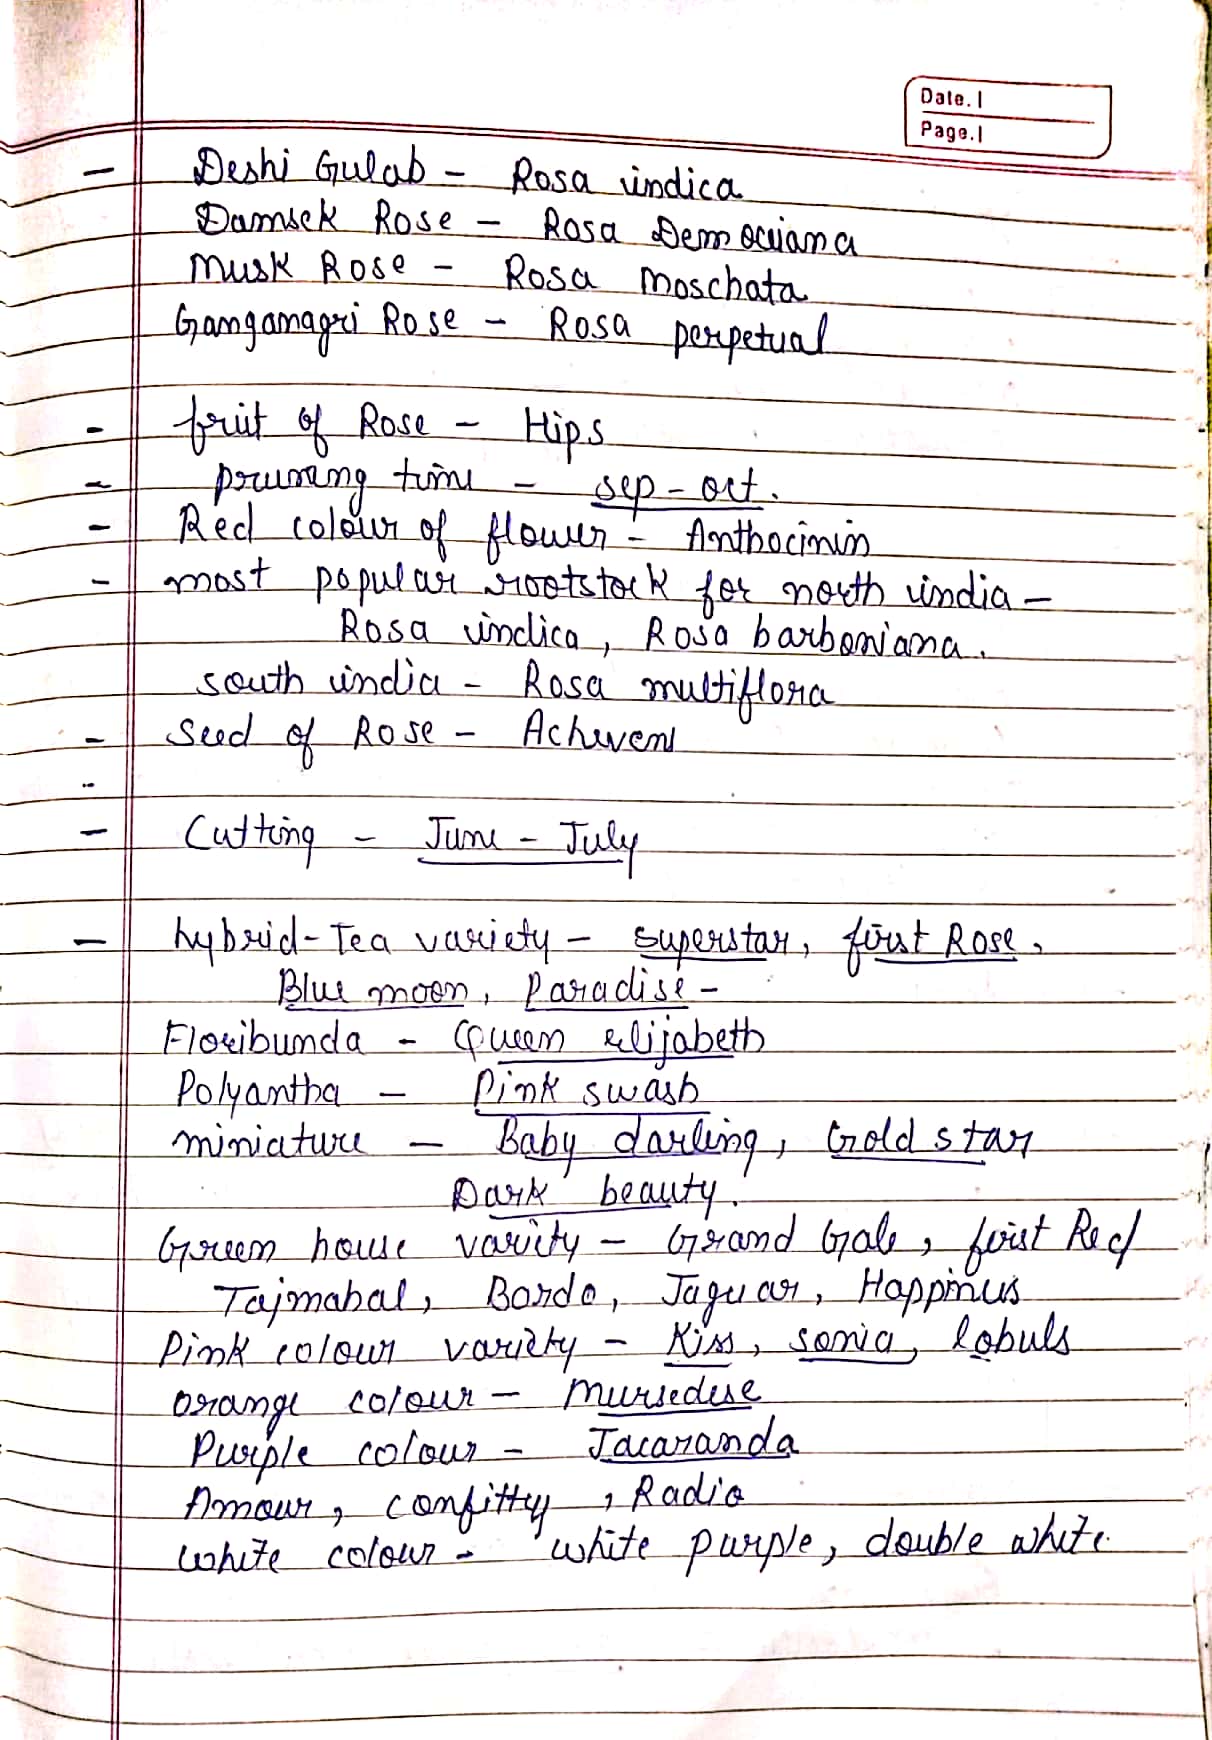 Date.
Page.
- Deshi Gulab - Rosa indica
Damsek Rose - Rosa Demociana
Musk Rose - Rosa Moschata
Ganganagri Rose - Rosa perpetual
- fruit of Rose - Hips
- pruning time - sep - oct.
- Red colour of flower - Anthocinin
- most popular rootstock for north india -
Rosa indica, Rosa barboniana.
south india - Rosa multiflora
- Seed of Rose - Achuen
- Cutting - June - July
- hybrid-Tea variety - superstar, first Rose,
Blue moon, Paradise -
Floribunda - Queen elijabeth
Polyantha - Pink swash
miniature - Baby darling, Gold star
Dark beauty.
Green house varity - Grand Gale, first Red
Tajmahal, Bordo, Jaguar, Happines
Pink colour variety - Kiss, sonia, lobuls
orange colour - Mursedese
Purple colour - Jacaranda
Amour, confitty, Radio
white colour - white purple, double white.